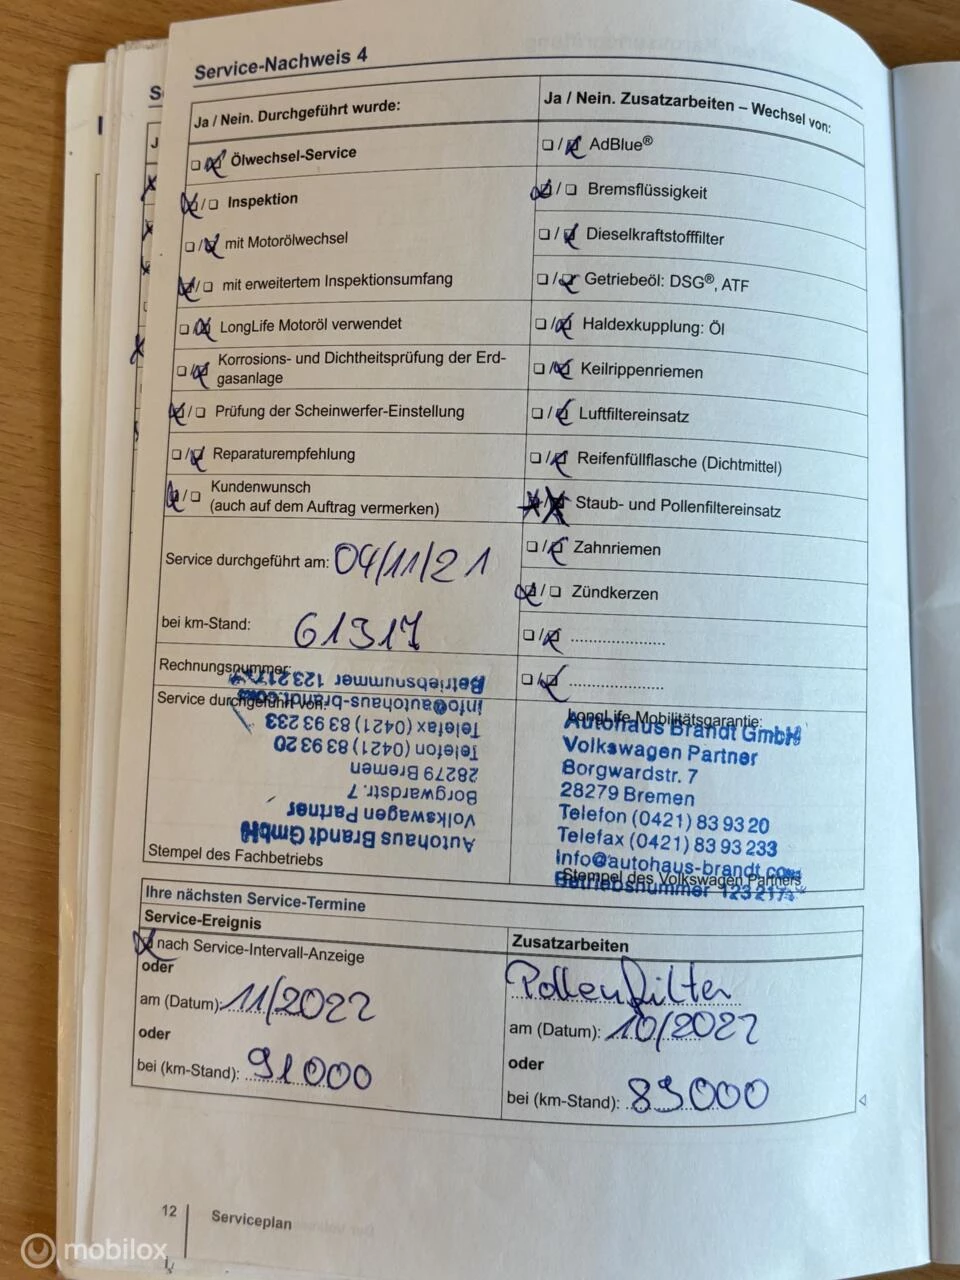 Service-Nachweis 4
Ja / Nein. Durchgeführt wurde:
Ölwechsel-Service
Inspektion
mit Motorölwechsel
mit erweitertem Inspektionsumfang
LongLife Motoröl verwendet
Korrosions- und Dichtheitsprüfung der Erd-
gasanlage
Prüfung der Scheinwerfer-Einstellung
Reparaturempfehlung
Kundenwunsch
(auch auf dem Auftrag vermerken)
Service durchgeführt am: 04/11/21
bei km-Stand: 61317
Rechnungsnummer:
Service durchgeführt von:
Autohaus Brandt GmbH
Volkswagen Partner
Borgwardstr. 7
28279 Bremen
Telefon (0421) 83 93 20
Telefax (0421) 83 93 233
info@autohaus-brandt.com
Betriebsnummer 123 217
Stempel des Fachbetriebs
Ja / Nein. Zusatzarbeiten – Wechsel von:
AdBlue®
Bremsflüssigkeit
Dieselkraftstofffilter
Getriebeöl: DSG®, ATF
Haldexkupplung: Öl
Keilrippenriemen
Luftfiltereinsatz
Reifenfüllflasche (Dichtmittel)
Staub- und Pollenfiltereinsatz
Zahnriemen
Zündkerzen
LongLife Mobilitätsgarantie:
Autohaus Brandt GmbH
Volkswagen Partner
Borgwardstr. 7
28279 Bremen
Telefon (0421) 83 93 20
Telefax (0421) 83 93 233
info@autohaus-brandt.com
Stempel des Volkswagen Partners
Betriebsnummer 123 217
Ihre nächsten Service-Termine
Service-Ereignis
nach Service-Intervall-Anzeige
oder
am (Datum): 11/2022
oder
bei (km-Stand): 91000
Zusatzarbeiten
Pollenfilter
am (Datum): 10/2022
oder
bei (km-Stand): 89000
12
Serviceplan
mobilox